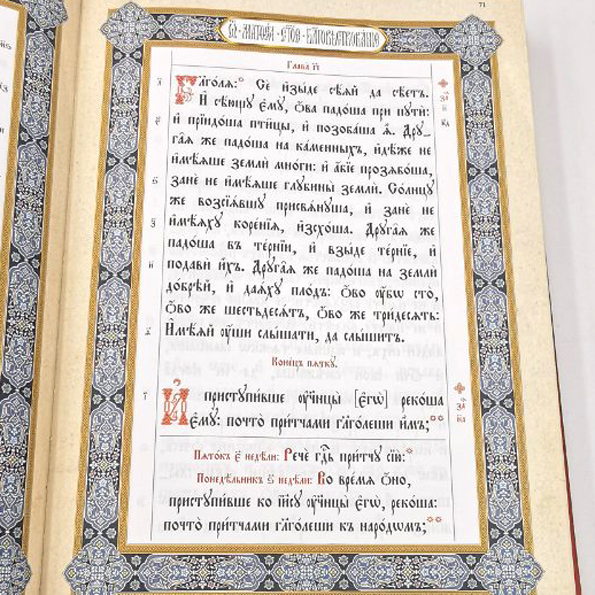 71
Ѿ МАТѲЕА СТОЕ БЛГОВѢСТВОВАНІЕ
Глава г҃і
Гл҃голѧ: Сѐ и҆зы́де сѣ́ѧй да сѣ́етъ.
И҆ сѣ́ющꙋ є҆мꙋ̀, ѻ҆́ва падо́ша при пꙋтѝ:
и҆ прїидо́ша пти̑цы, и҆ позоба́ша ѧ҆̀. Дрꙋ-
га̑ѧ же падо́ша на ка́менныхъ, и҆дѣ́же не
и҆мѣ́ѧше землѝ мно́ги: и҆ а҆́бїе прозѧбо́ша,
занѐ не и҆мѣ́ѧше глꙋбины̀ землѝ. Со́лнцꙋ
же возсїѧ́вшꙋ присвѧ́нꙋша, и҆ занѐ не
и҆мѣ́ѧхꙋ коре́нїѧ, и҆зсхо́ша. Дрꙋга̑ѧ же
падо́ша въ те́рнїи, и҆ взы́де те́рнїе, и҆
подавѝ и҆̀хъ. Дрꙋга̑ѧ же падо́ша на землѝ
до́брѣй, и҆ даѧ́хꙋ пло́дъ: ѻ҆́во ᲂу҆́бѡ сто̀,
ѻ҆́во же шестьдесѧ́тъ, ѻ҆́во же три́десѧть:
И҆мѣ́ѧй ᲂу҆́ши слы́шати, да слы́шитъ.
Коне́цъ пѧткꙋ̀.
И҆ пристꙋпи́вше ᲂу҆чн҃цы̀ [є҆гѡ̀] реко́ша
є҆мꙋ̀: почто̀ при́тчами гл҃голеши и҆̀мъ;
Пѧто́къ є҃ недѣ́ли: Речѐ гд҇ь при́тчꙋ сїю̀:
Понедѣ́льникъ ѕ҃ недѣ́ли: Во вре́мѧ ѻ҆́но,
пристꙋпи́вше ко і҆и҃сꙋ ᲂу҆чн҃цы̀ є҆гѡ̀, реко́ша:
почто̀ при́тчами гл҃голеши къ наро́дѡмъ;